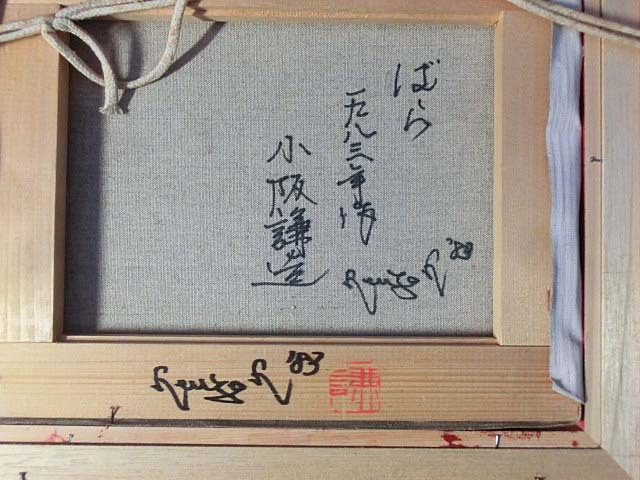 ばら
一九八三年作
小阪謙造
'83
'83
謙